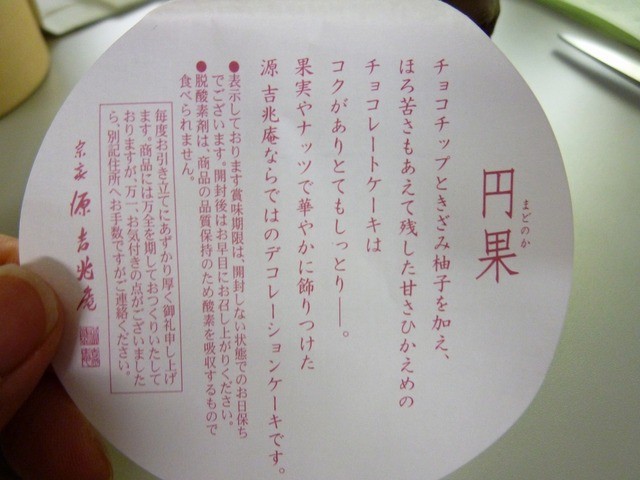 円果
まどのか
チョコチップときざみ柚子を加え、
ほろ苦さもあえて残した甘さひかえめの
チョコレートケーキは
コクがありとてもしっとり―。
果実やナッツで華やかに飾りつけた
源 吉兆庵ならではのデコレーションケーキです。
●表示しております賞味期限は、開封しない状態でのお日保ち
でございます。開封後はお早目にお召し上がりください。
●脱酸素剤は、商品の品質保持のため酸素を吸収するもので
食べられません。
毎度お引き立てにあずかり厚く御礼申し上げ
ます。商品には万全を期しておつくりいたして
おりますが、万一、お気付きの点がございました
ら、別記住所へお手数ですがご連絡ください。
宗家 源 吉兆庵